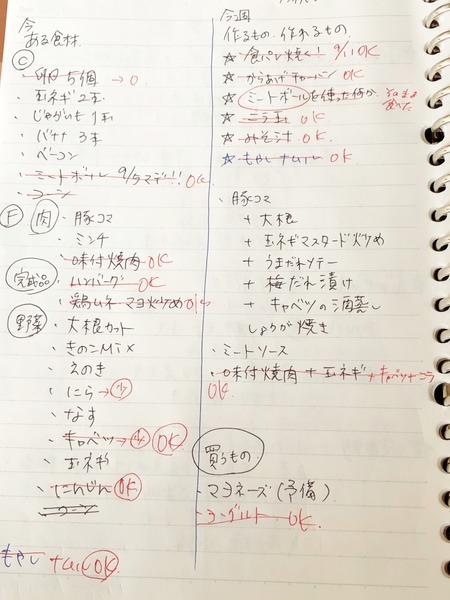 今
ある食材
C
・卵 5個 → 0
・玉ネギ 2玉
・じゃがいも 1玉
・バナナ 3本
・ベーコン
・ミートボール 9/5マデ!! OK
・コーン
F 肉 ・豚コマ
・ミンチ
・味付焼肉 OK
完成品 ・ハンバーグ OK
・鶏ムネ マヨ炒め OK
野菜 ・大根カット
・きのこMix
・えのき
・にら → 少
・なす
・キャベツ → 少 OK
・玉ネギ
・にんじん OK
・コーン
もやし ナムル OK
今週
作るもの、作れるもの
☆ 食パン焼く! 9/1 OK
☆ からあげチャーハン OK
☆ ミートボールを使った何か そのまま食べた
☆ ニラ玉 OK
☆ みそ汁 OK
☆ もやしナムル OK
・豚コマ
+ 大根
+ 玉ネギマスタード炒め
+ うまだれソテー
+ 梅だれ漬け
+ キャベツの酒蒸し
しょうが焼き
・ミートソース
・味付焼肉 + 玉ネギ + キャベツ + ニラ
OK
買うもの
・マヨネーズ (予備)
・ヨーグルト OK